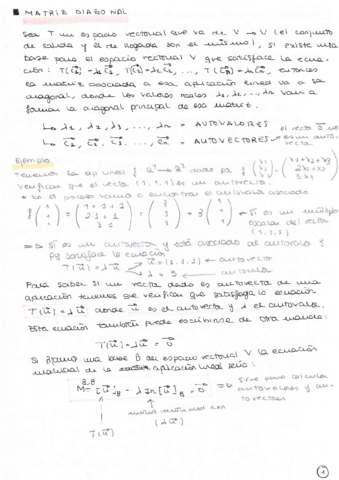 MATRIZ DIAGONAL
Sea T un espacio vectorial que va de V → V (el conjunto
de salida y el de llegada son el mismo), si existe una
base para el espacio vectorial V que satisface la ecua-
ción: T(C₁)=λC₁, T(C₂)=λC₂, ..., T(Cₙ)=λCₙ, entonces
la matriz asociada a esa aplicación lineal va a ser
diagonal, donde los valores reales λ₁, λ₂, ..., λn van a
formar la diagonal principal de esa matriz.
↳ λ₁, λ₂, λ₃, ..., λn = AUTOVALORES
↳ C₁, C₂, C₃, ..., Cn = AUTOVECTORES
el vecto 0 no
es un auto-
vecto.
Ejemplo
Tenemos la ap lineal f: R³ → R³ dada por f (x₁ x₂ x₃) = (x₁+x₂+x₃ 2x₁+x₂ 3x₁)
verificar que el vecto (1,1,1) es un autovecto.
f (1 1 1) = (1+1+1 2·1+1 3·1) = (3 3 3) = 3 (1 1 1) → Sí es un múltiplo
escalar del vecto
(1,1,1)
⇒ Sí es un autovecto y está asociado al autovalo 3
pq satisface la ecuación
T(u) = λu
u = (1,1,1) ← autovecto
λ = 3 ← autovalo
Para saber si un vecto dado es autovecto de una
aplicación tenemos que verificar que satisfaga la ecuación
T(u) = λu donde u es el autovecto, y λ el autovalo.
Esta ecuación también puede escribirse de otra manera:
T(u) - λu = 0
Si fijamos una base B del espacio vectorial V la ecuación
matricial de la aplicación lineal sería:
M B,B [u]B - λ In [u]B = 0 ⇒ Sirve para calcular
autovalores y au-
tovectores
T(u)
matriz identidad nxn
(λu)
1